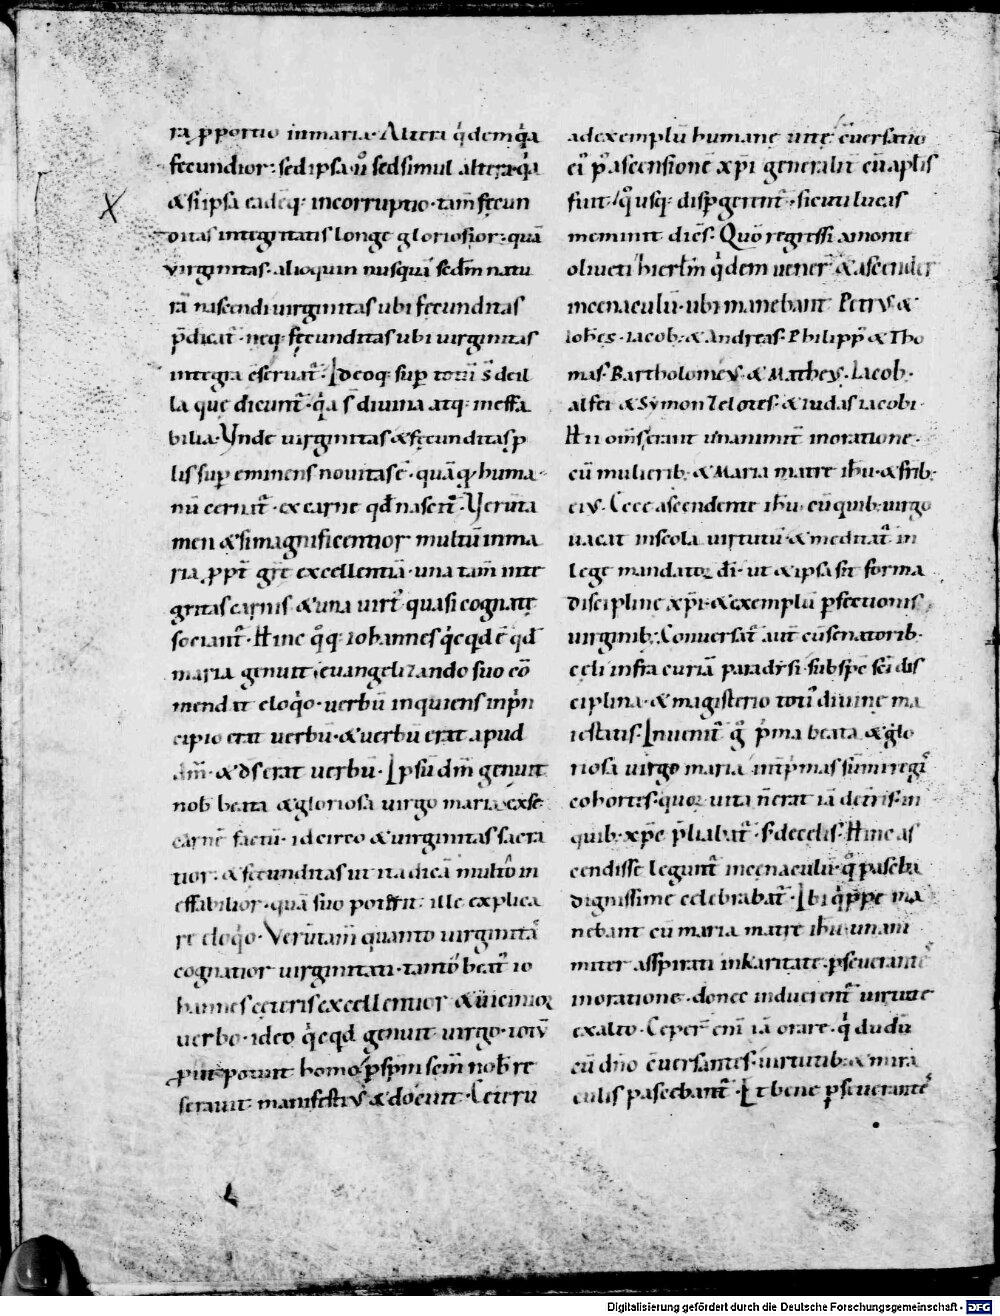 ra ꝓportio inmaria· Altera q̇dem q̇a
fecundior: sed ipsa uͦ sed simul altera q̇a
& si ipsa eadeq; incorruptio· tam̅ fęcun
ditas integritatis longe gloriosior· quā
virginitas· alioquin nusquā sedm̅ natu
rā nascendi uirginitas ubi fęcunditas
p̄dicat᷑· neq; fęcunditas ubi uirginitas
integra c̅seruat᷑· Ideoq; suꝑ totū
la quę dicunt᷑· q̇a s̅ diuina atq; ineffa
bilia· Vnde uirginitas & fęcunditas ꝓ
lis suꝑ eminens nouitas ē· quāqͣ huma
nū cernat᷑· ex carne qd̅ nascit᷑· Verūta
men & si magnificentior multū inma
ria ꝓpt̅ gr̅e excellentiā· una tam̅ inte
gritas carnis & una uirt᷑ quasi cognatę
sociant᷑· Hinc q̊q; iohannes q̇cqd ē qd̅
maria genuit euangelizando suo cō
mendat eloq̇o· uerbū inquiens inp̍n
cipio erat uerbū· & uerbū erat apud
dm̅· & ds̅ erat uerbū· Ipsū dm̅ genuit
nob̅ beata & gloriosa uirgo maria ex se
carnē factū· idcirco & uirginitas sacra
tior· & fęcunditas ut ita dicā multo in
effabilior· quā suo potuit᷑ ille explica
re eloq̇o· Verūtam̅ quanto uirginita᷑
cognatior uirginitati· tanto beat᷑ io
hannes cęteris excellentior & uicinior
uerbo· ideo q̇cqd genuit uirgo· totū
prout potuit homo ꝑ spm̅ scm̅ nob̅ re
serauit· manifestiꝰ & docuit· Ceterū
adexemplū humanę uitę c̅uersatio
ei᷑ p᷑ ascensionē xp̅i generalit̅ cū apl̅is
fuit· q̊usq; disꝑgerent᷑· sicuti lucas
meminit dicēs· Quō regressi amonte
oliueti hierl̅m q̇dem uener̅ & ascender̅
incenaculū· ubi manebant Petrꝰ &
Ioh̅es· iacob; & Andreas· Philipp᷑ & Tho
mas· Bartholomeꝰ· & Mattheꝰ· Iacob·
alfei & Symon Zelotes· & iudas iacobi·
Hii om̅s erant unanimit᷑ inoratione·
cū mulierib; & Maria matre ih̅u· & fr̅ib;
eiꝰ· Ecce ascendente ih̅u· cū quib; uirgo
uacat inscola uirtutū· & meditat᷑ in
lege mandatoꝝ di̅· ut & ipsa sit forma
disciplinę xp̅i· & exemplū ꝑfectionis
uirginib;· Conuersat᷑ aut̅ cū senatorib;
celi infra curiā paradysi· sub spe sc̅i dis
ciplina· & magisterio totiꝰ diuinę ma
iestatis· Inuenit᷑ g̊ p̍ma beata & glo
riosa uirgo maria int᷑ p̍mas sūmi regi᷑
cohortes· quoꝝ uita n̅ erat iā deter̅is· in
quib; xp̅c p̄liabat᷑· s; de celis· Hinc as
cendisse legunt᷑ incenaculū· q̊ pascha
dignissime celebrabat᷑· Ibi q̇ppe ma
nebant cū maria matre ih̅u· unani
miter asspirati inkaritate· ꝑseuerante᷑
inoratione· donec induerent᷑ uirtute
exalto· Ceper̅ eni̅ iā orare· q̇ dudū
cū dn̅o c̅uersantes· uirtutib; & mira
culis pascebant᷑· Et bene ꝑseuerante᷑
Digitalisierung gefördert durch die Deutsche Forschungsgemeinschaft - DFG